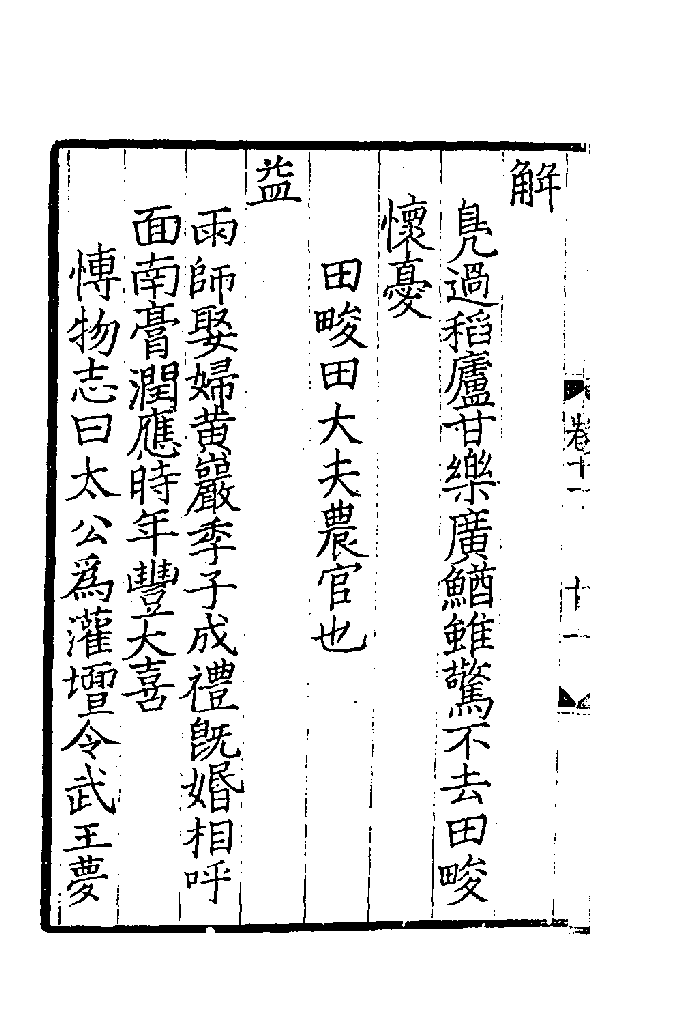 解
鳧過稻廬甘樂廣鰌雖驚不去田畯
懷憂
田畯田大夫農官也
益
雨師娶婦黄巖季子成禮旣婚相呼
面南膏潤應時年豐大喜
博物志曰太公爲灌壇令武王夢
卷十一
十一